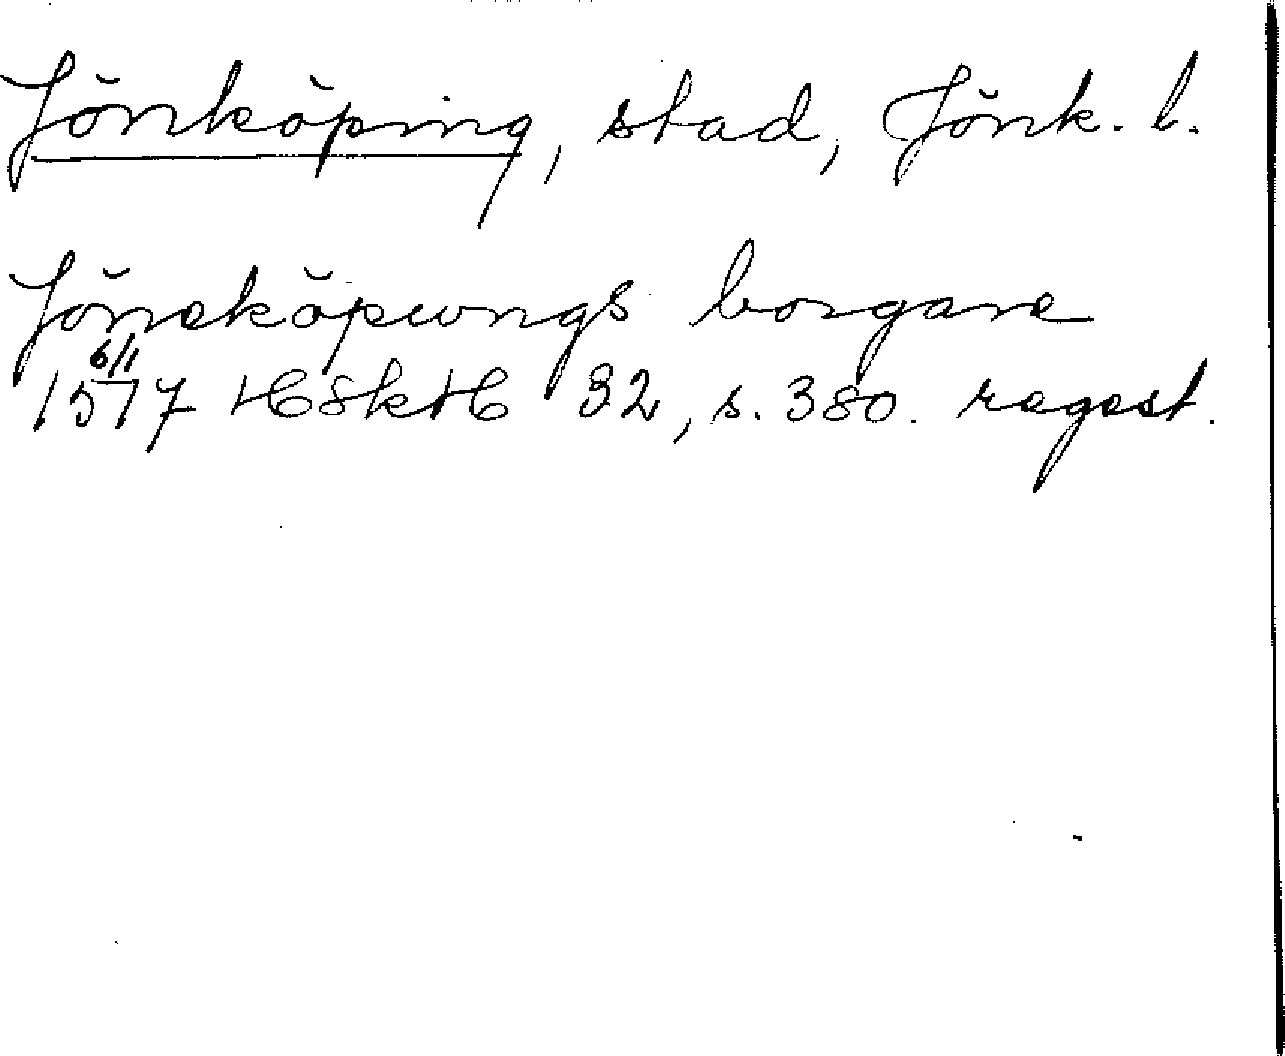 Jönköping, stad, Jönk. l.
Jöneköpungs borgare
6/1
1577 HSkH 32, s. 380. regest.